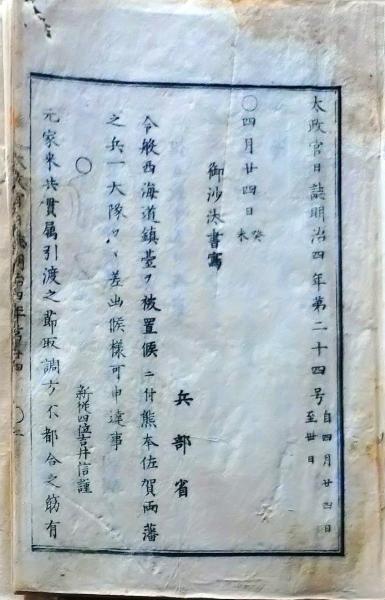 太政官日誌明治四年第二十四号 自四月廿四日 至卅日
〇四月廿四日 癸未
御沙汰書寫
兵部省
今般西海道鎮臺ヲ被置候ニ付熊本佐賀両藩
之兵一大隊ツヽ差出候様可申達事
〇
新従四位吉井信謹
元家来共貫属引渡之節取調方不都合之筋有